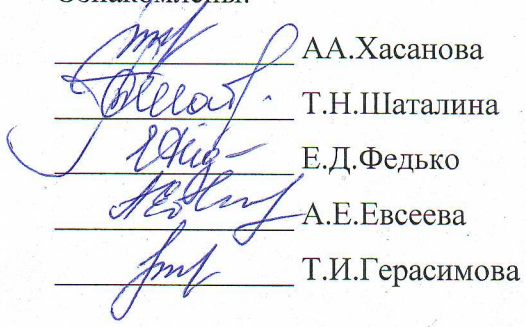 Ознакомлены:
АА.Хасанова
Т.Н.Шаталина
Е.Д.Федько
А.Е.Евсеева
Т.И.Герасимова